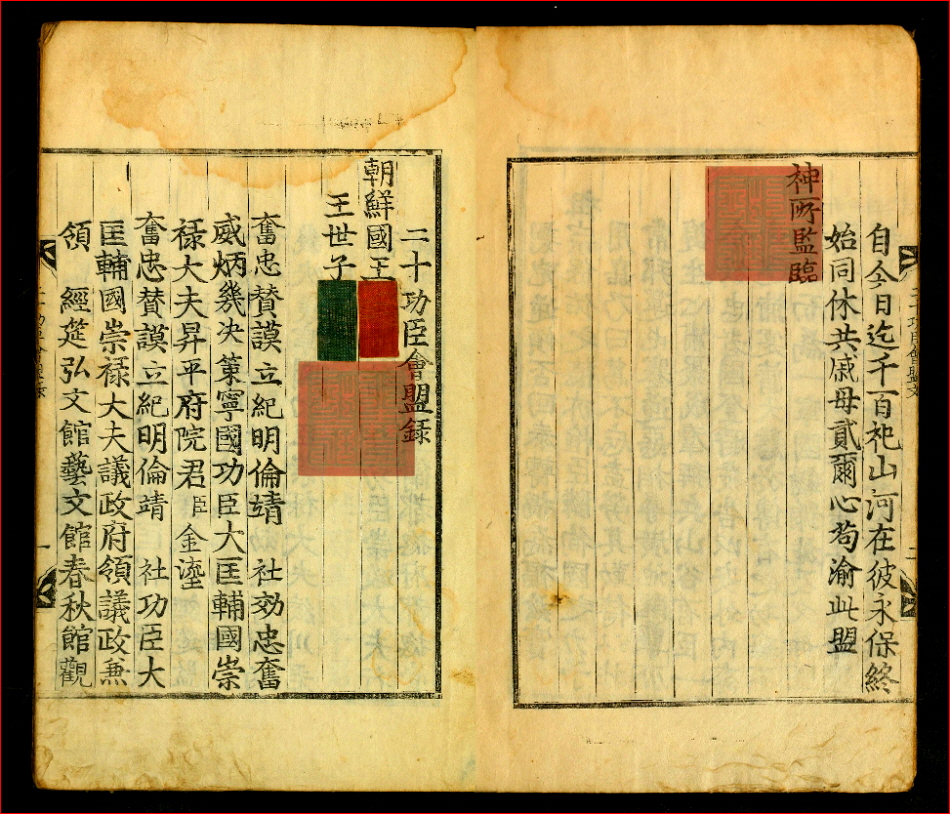 自今日迄千百祀山河在彼永保終
始同休共戚毋貳爾心苟渝此盟
神所監臨
二十功臣會盟錄
朝鮮國王
王世子
奮忠贊謨立紀明倫靖社効忠奮
威炳幾決策寧國功臣大匡輔國崇
祿大夫昇平府院君臣金瑬
奮忠贊謨立紀明倫靖社功臣大
匡輔國崇祿大夫議政府領議政兼
領經筵弘文館藝文館春秋館觀
一
二